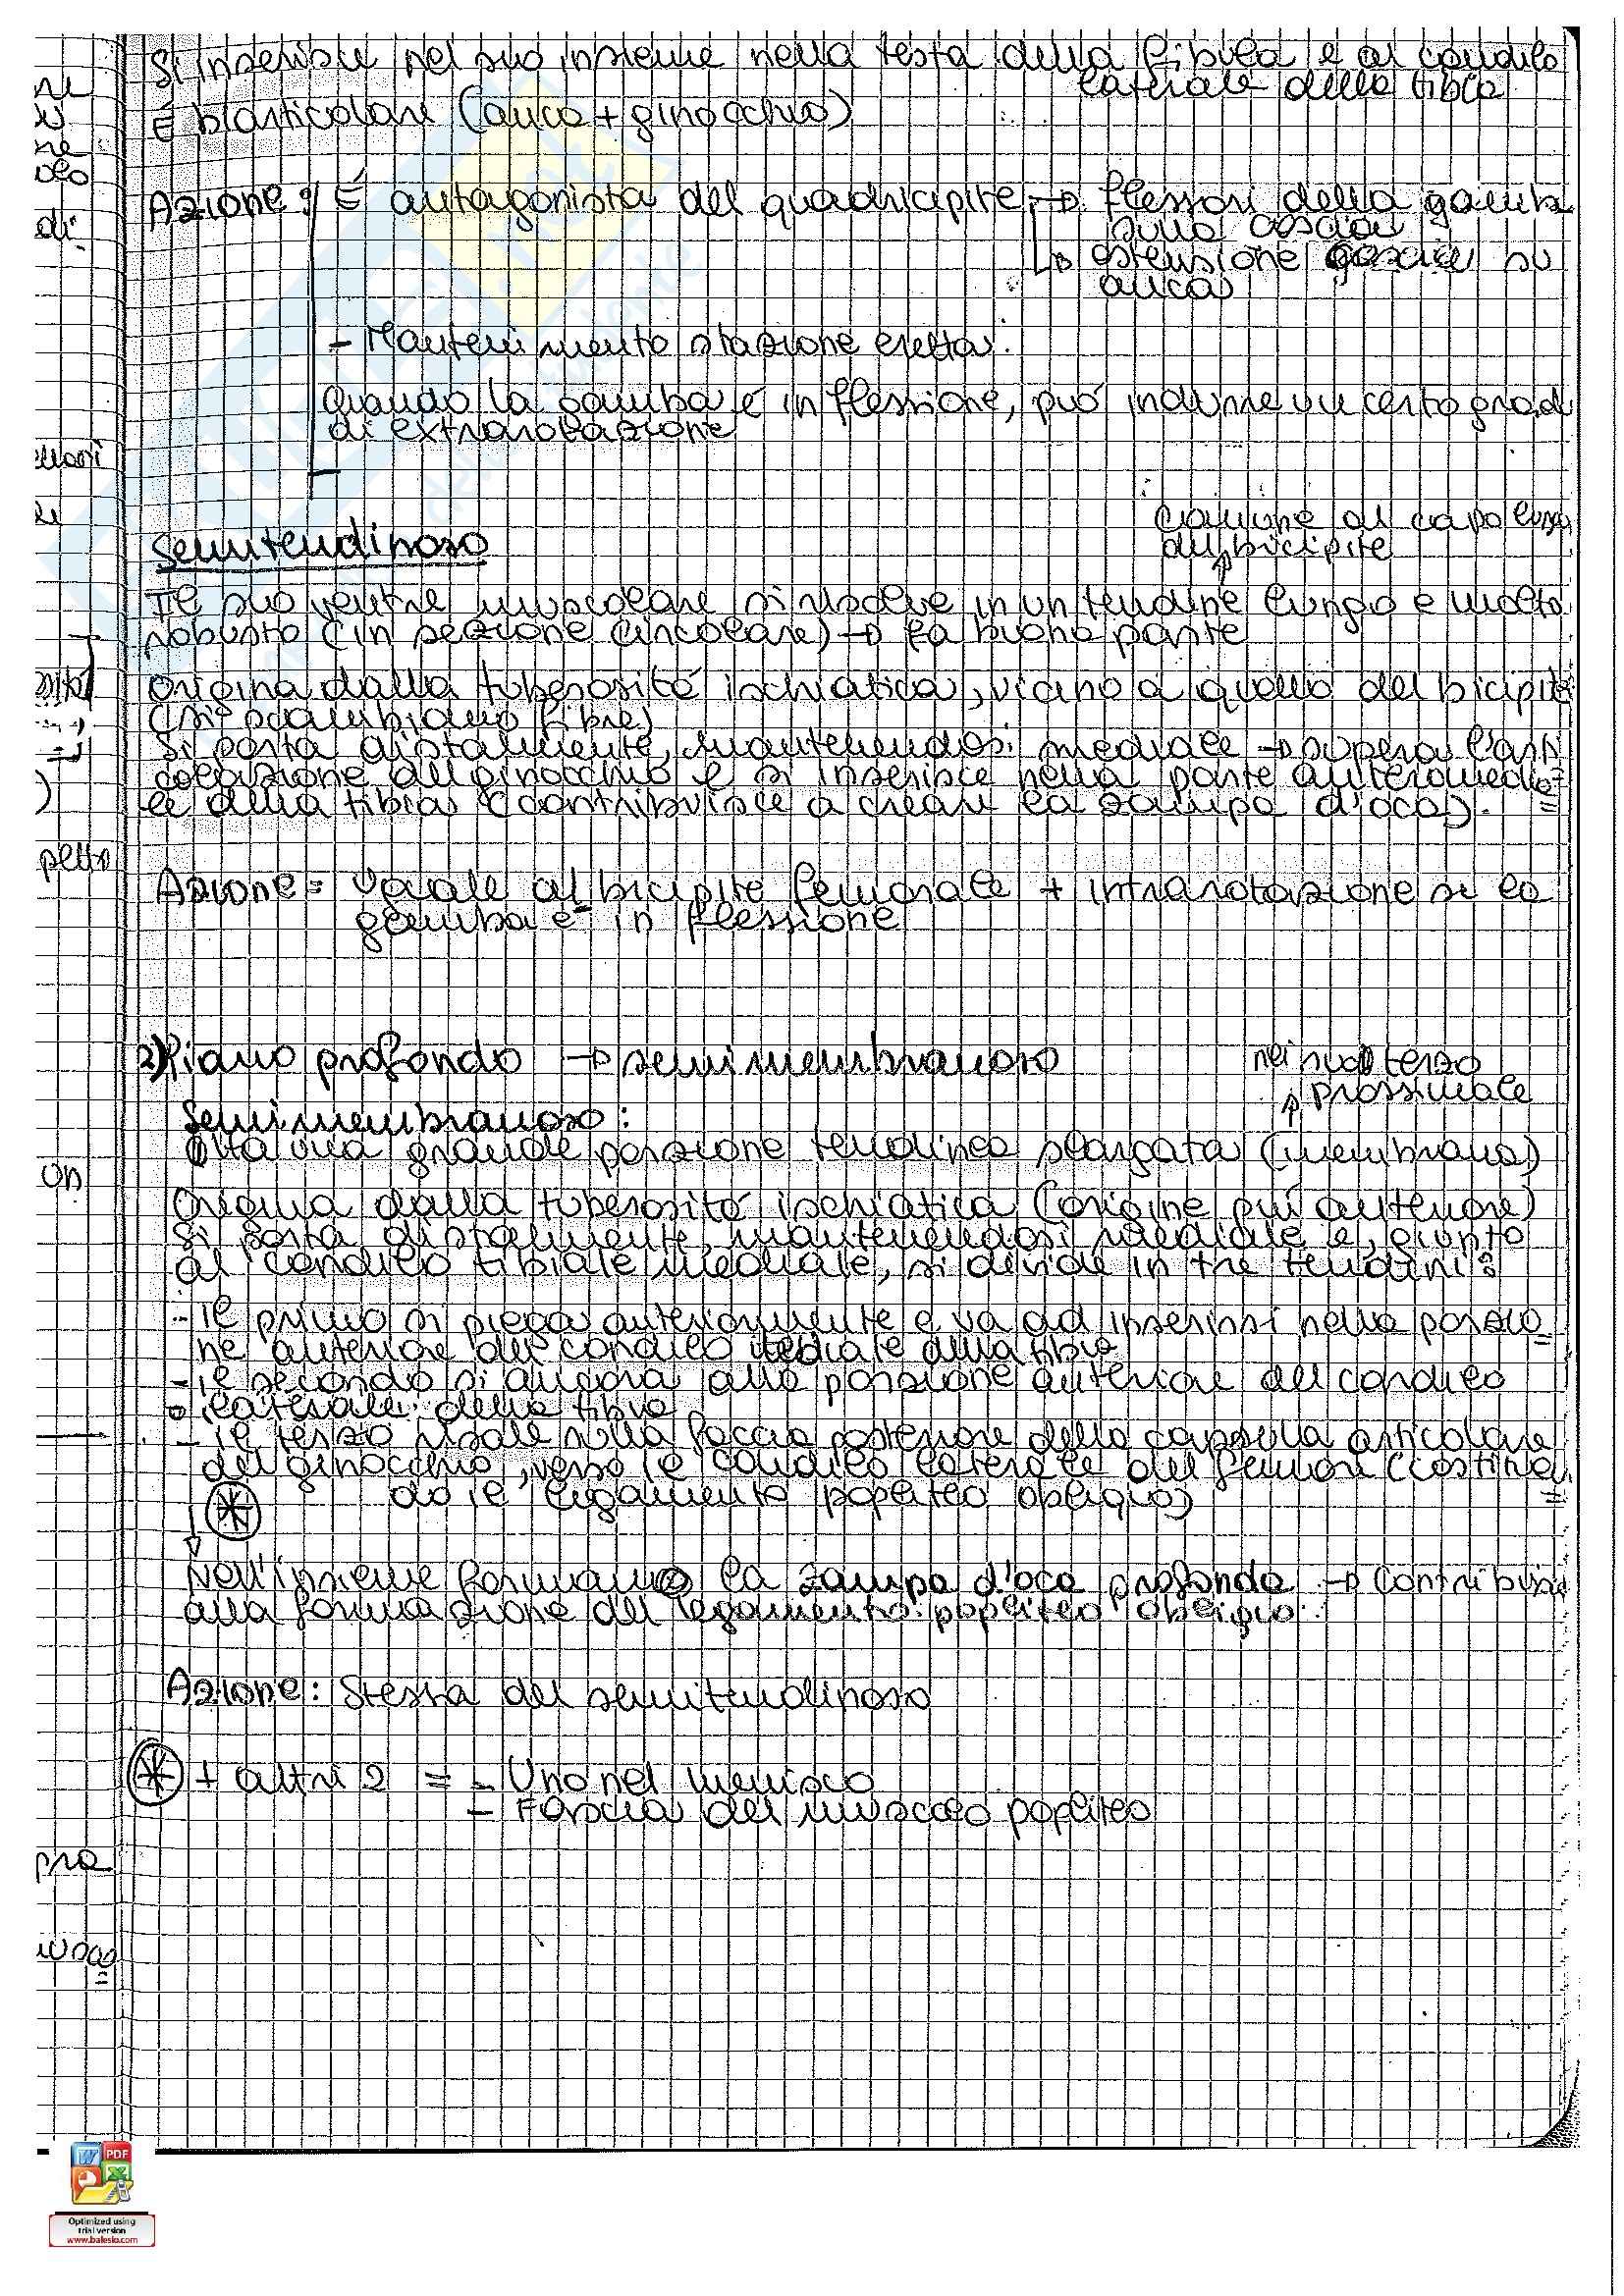 Si inserisce nel suo insieme nella testa della fibula e al condilo
laterale della tibia
É biarticolare (anca + ginocchio)
Azione: É antagonista del quadricipite → flessori della gamba
sulla coscia
↳ estensione coscia su
anca
- Mantenimento stazione eretta.
Quando la gamba é in flessione, puó indurre un certo grado
di extrarotazione
comune al capo lungo
del bicipite
Semitendinoso
Il suo ventre muscolare si risolve in un tendine lungo e molto
robusto (in sezione circolare) → fa buona parte
Origina dalla tuberositá ischiatica, vicino a quello del bicipite
(si scambiano fibre)
Si porta distalmente, mantenendosi mediale → supera l'arti
colazione del ginocchio e si inserisce nella parte anteromedia=
le della tibia (contribuisce a creare la zampa d'oca).
Azione = Uguale al bicipite femorale + intrarotazione se la
gamba é in flessione
2) Piano profondo → semimembranoso
nel suo terzo
prossimale
Semimembranoso:
Ha una grande porzione tendinea slargata (membrana)
Origina dalla tuberositá ischiatica (origine piú anteriore)
Si porta distalmente, mantenendosi mediale e, giunto
al condilo tibiale mediale, si divide in tre tendini:
- il primo si piega anteriormente e va ad inserirsi nella porzio=
ne anteriore del condilo mediale della tibia
- il secondo si ancora alla porzione anteriore del condilo
laterale della tibia
- il terzo risale sulla faccia posteriore della capsula articolare
del ginocchio, verso il condilo laterale del femore (costituen=
do il legamento popliteo obliquo)
Nell'insieme formano la zampa d'oca profonda → contribuisce
alla formazione del legamento popliteo obliquo.
Azione: Stessa del semitendinoso
* + altri 2 = - Uno nel menisco
- Fascia del muscolo popliteo
Optimized using
trial version
www.balesio.com